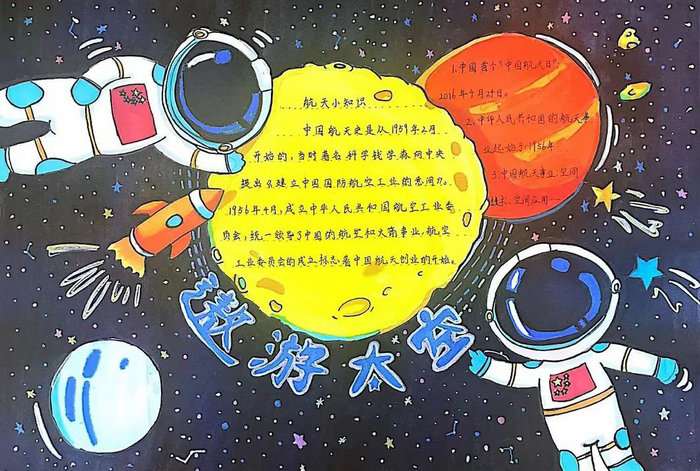 航天小知识
中国航天史是从1959年2月
开始的,当时著名科学钱学森向中央
提出《建立中国国防航空工业的意见》。
1956年4月,成立中华人民共和国航空工业委
员会,统一领导了中国的航空和火箭事业,航空
工业委员会的成立标志着中国航天创业的开始。
1.中国首个“中国航天日”
2016年4月24日。
2.中华人民共和国的航天事
业起始于1956年
3.中国航天事业:空间
技术、空间应用
遨游太空